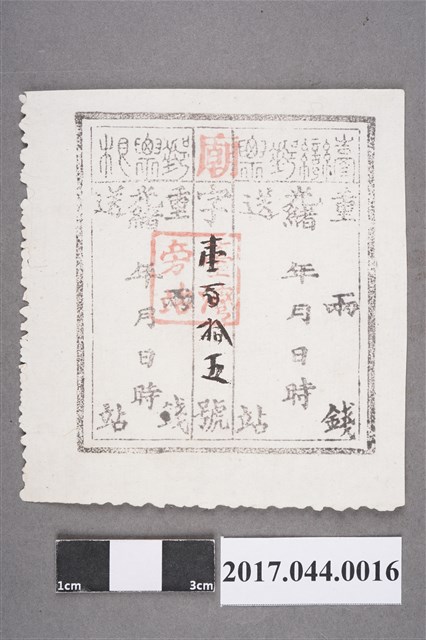 臺灣郵票
重 兩 錢
光緒 年 月 日 時
送 站
廟字壹百拾五號
郵票根
重 兩 錢
光緒 年 月 日 時
送 站
臺灣
旁站
1cm 3cm
2017.044.0016